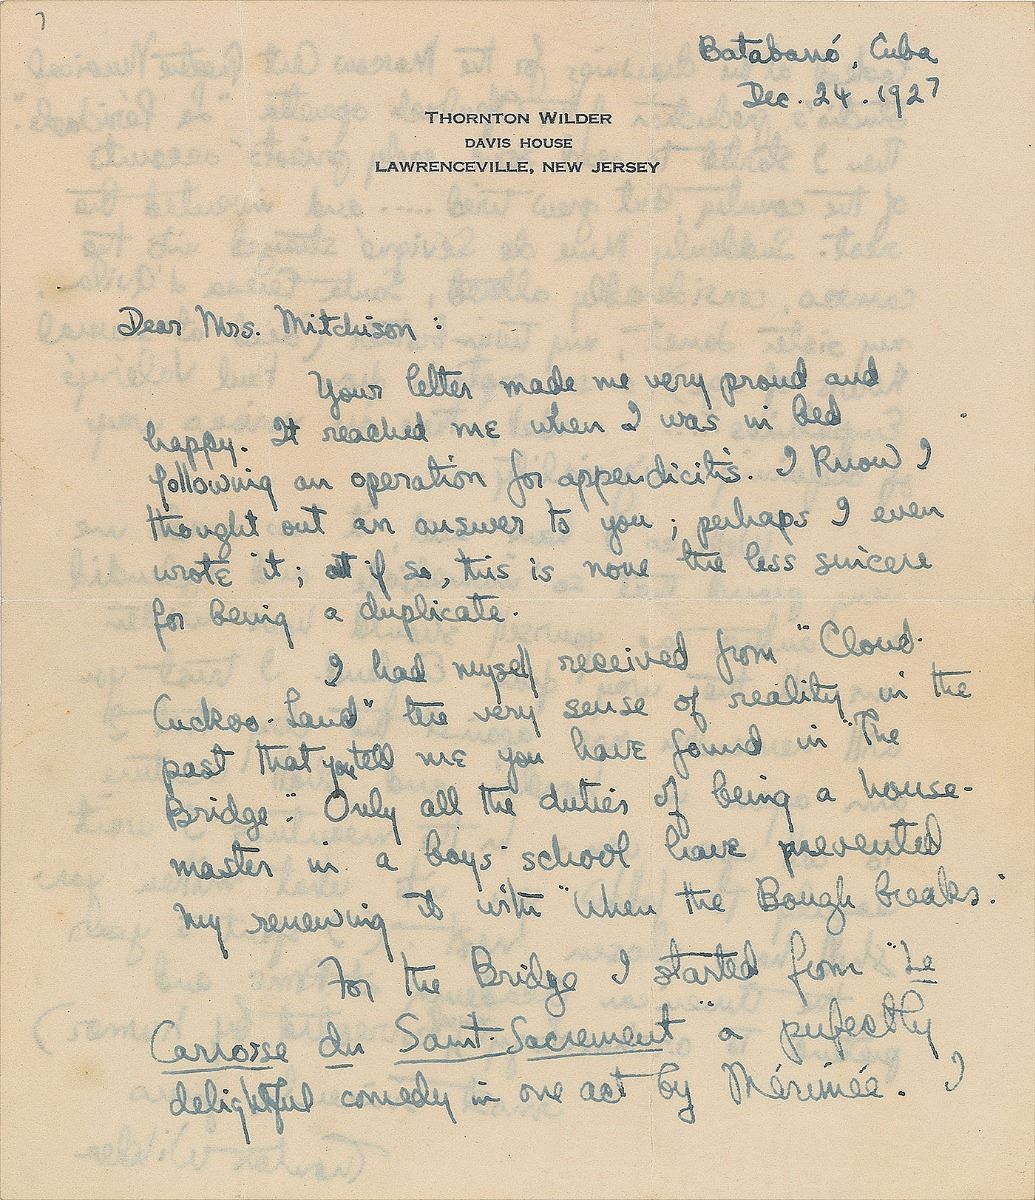 Batabanó, Cuba
Dec. 24. 1927
THORNTON WILDER
DAVIS HOUSE
LAWRENCEVILLE, NEW JERSEY
Dear Mrs. Mitchison :
Your letter made me very proud and
happy. It reached me when I was in bed
following an operation for appendicitis. I know I
thought out an answer to you ; perhaps I even
wrote it ; if so, this is none the less sincere
for being a duplicate.
I had myself received from "Cloud-
Cuckoo-Land" the very sense of reality in the
past that you tell me you have found in "The
Bridge." Only all the duties of being a house-
master in a boys school have prevented
my renewing it with "When the Bough breaks."
For the Bridge I started from "Le
Carrosse du Saint-Sacrement" a perfectly
delightful comedy in one act by Mérimée. I